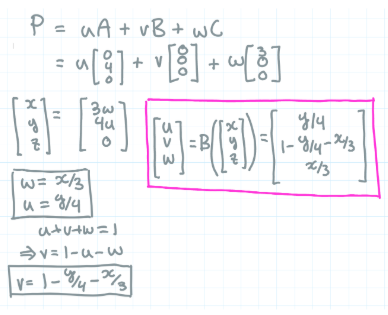 P = uA + vB + wC
= u[0 4 0] + v[0 0 0] + w[3 0 0]
[x y z] = [3w 4u 0]
[u v w] = B([x y z]) = [y/4 1-y/4-x/3 x/3]
w = x/3
u = y/4
u+v+w=1
⇒ v = 1-u-w
v = 1 - y/4 - x/3